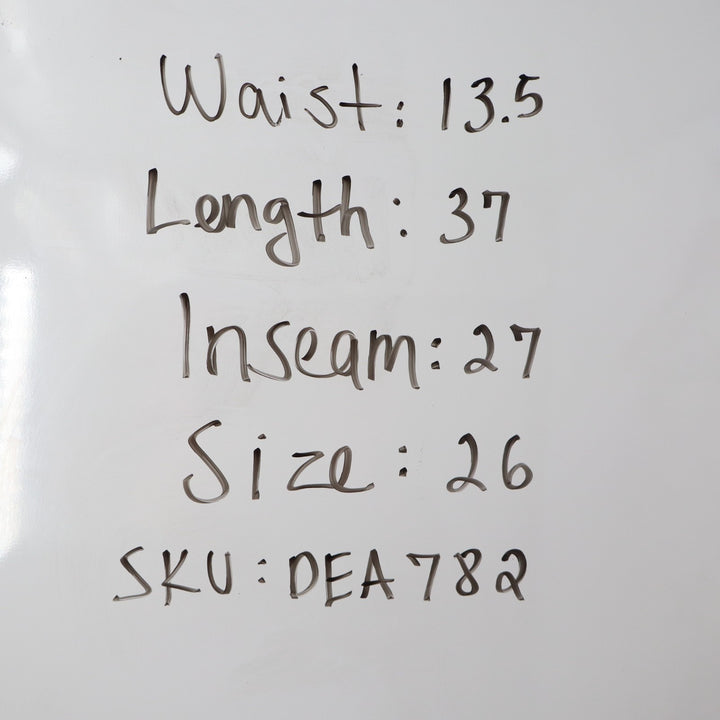 Waist: 13.5
Length: 37
Inseam: 27
Size: 26
SKU: DEA782